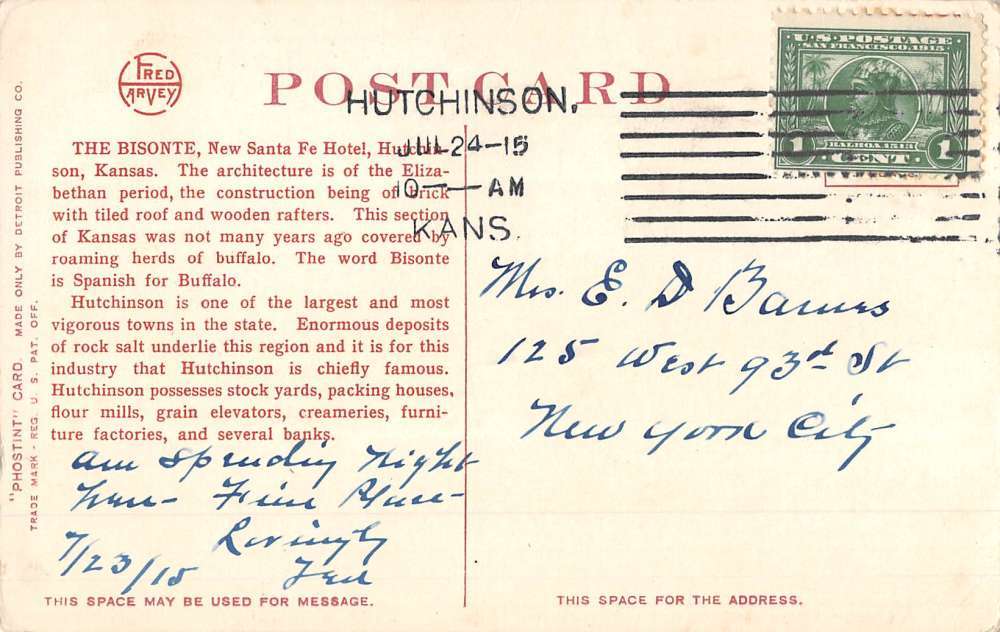 FRED HARVEY
POST CARD
HUTCHINSON,
JUL 24-15
10-- AM
KANS.
U·S·POSTAGE
SAN FRANCISCO, 1915
BALBOA 1513
1 CENT 1
"PHOSTINT" CARD. MADE ONLY BY DETROIT PUBLISHING CO.
TRADE MARK - REG. U. S. PAT. OFF.
THE BISONTE, New Santa Fe Hotel, Hutchin-
son, Kansas. The architecture is of the Eliza-
bethan period, the construction being of brick
with tiled roof and wooden rafters. This section
of Kansas was not many years ago covered by
roaming herds of buffalo. The word Bisonte
is Spanish for Buffalo.
Hutchinson is one of the largest and most
vigorous towns in the state. Enormous deposits
of rock salt underlie this region and it is for this
industry that Hutchinson is chiefly famous.
Hutchinson possesses stock yards, packing houses,
flour mills, grain elevators, creameries, furni-
ture factories, and several banks.
am spending night
here - Fine Place -
Lovingly
7/23/15 Fred
Mrs. E. D Barnes
125 West 93rd St
New York City
THIS SPACE MAY BE USED FOR MESSAGE.
THIS SPACE FOR THE ADDRESS.